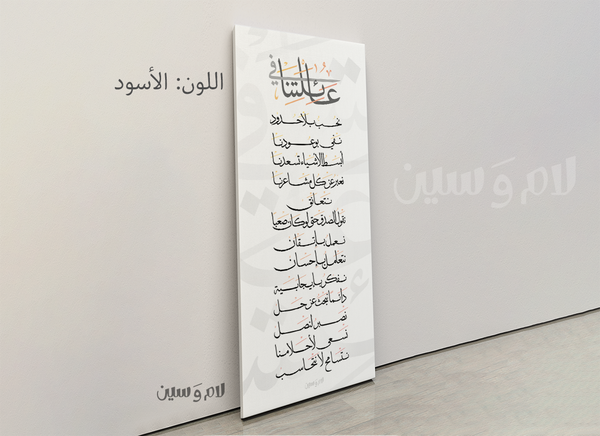 اللون: الأسود
في عائلتنا
نحب بلا حدود
نفي بوعودنا
أبسط الأشياء تسعدنا
نعبر عن كل مشاعرنا
نتعانق
نقول الصدق حتى لو كان صعبا
نعمل بإتقان
نتعامل بإحسان
نفكر بإيجابية
دائما نبحث عن حل
نصبر لنصل
نسعى لأحلامنا
نتسامح لا نتحاسب
لام وسين
لام وَ سين
لام وَ سين